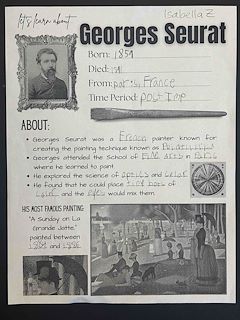 Isabella Z
let's learn about
Georges Seurat
Born: 1859
Died: 1891
From: paris, France
Time Period: post Imp
ABOUT:
Georges Seurat was a French painter known for
creating the painting technique known as Pointillism
Georges attended the School of Fine arts in Paris
where he learned to paint
He explored the science of optics and color
He found that he could place tiny dots of
color and the eyes would mix them.
HIS MOST FAMOUS PAINTING
"A Sunday on La
Grande Jatte,"
painted between
1884 and 1886